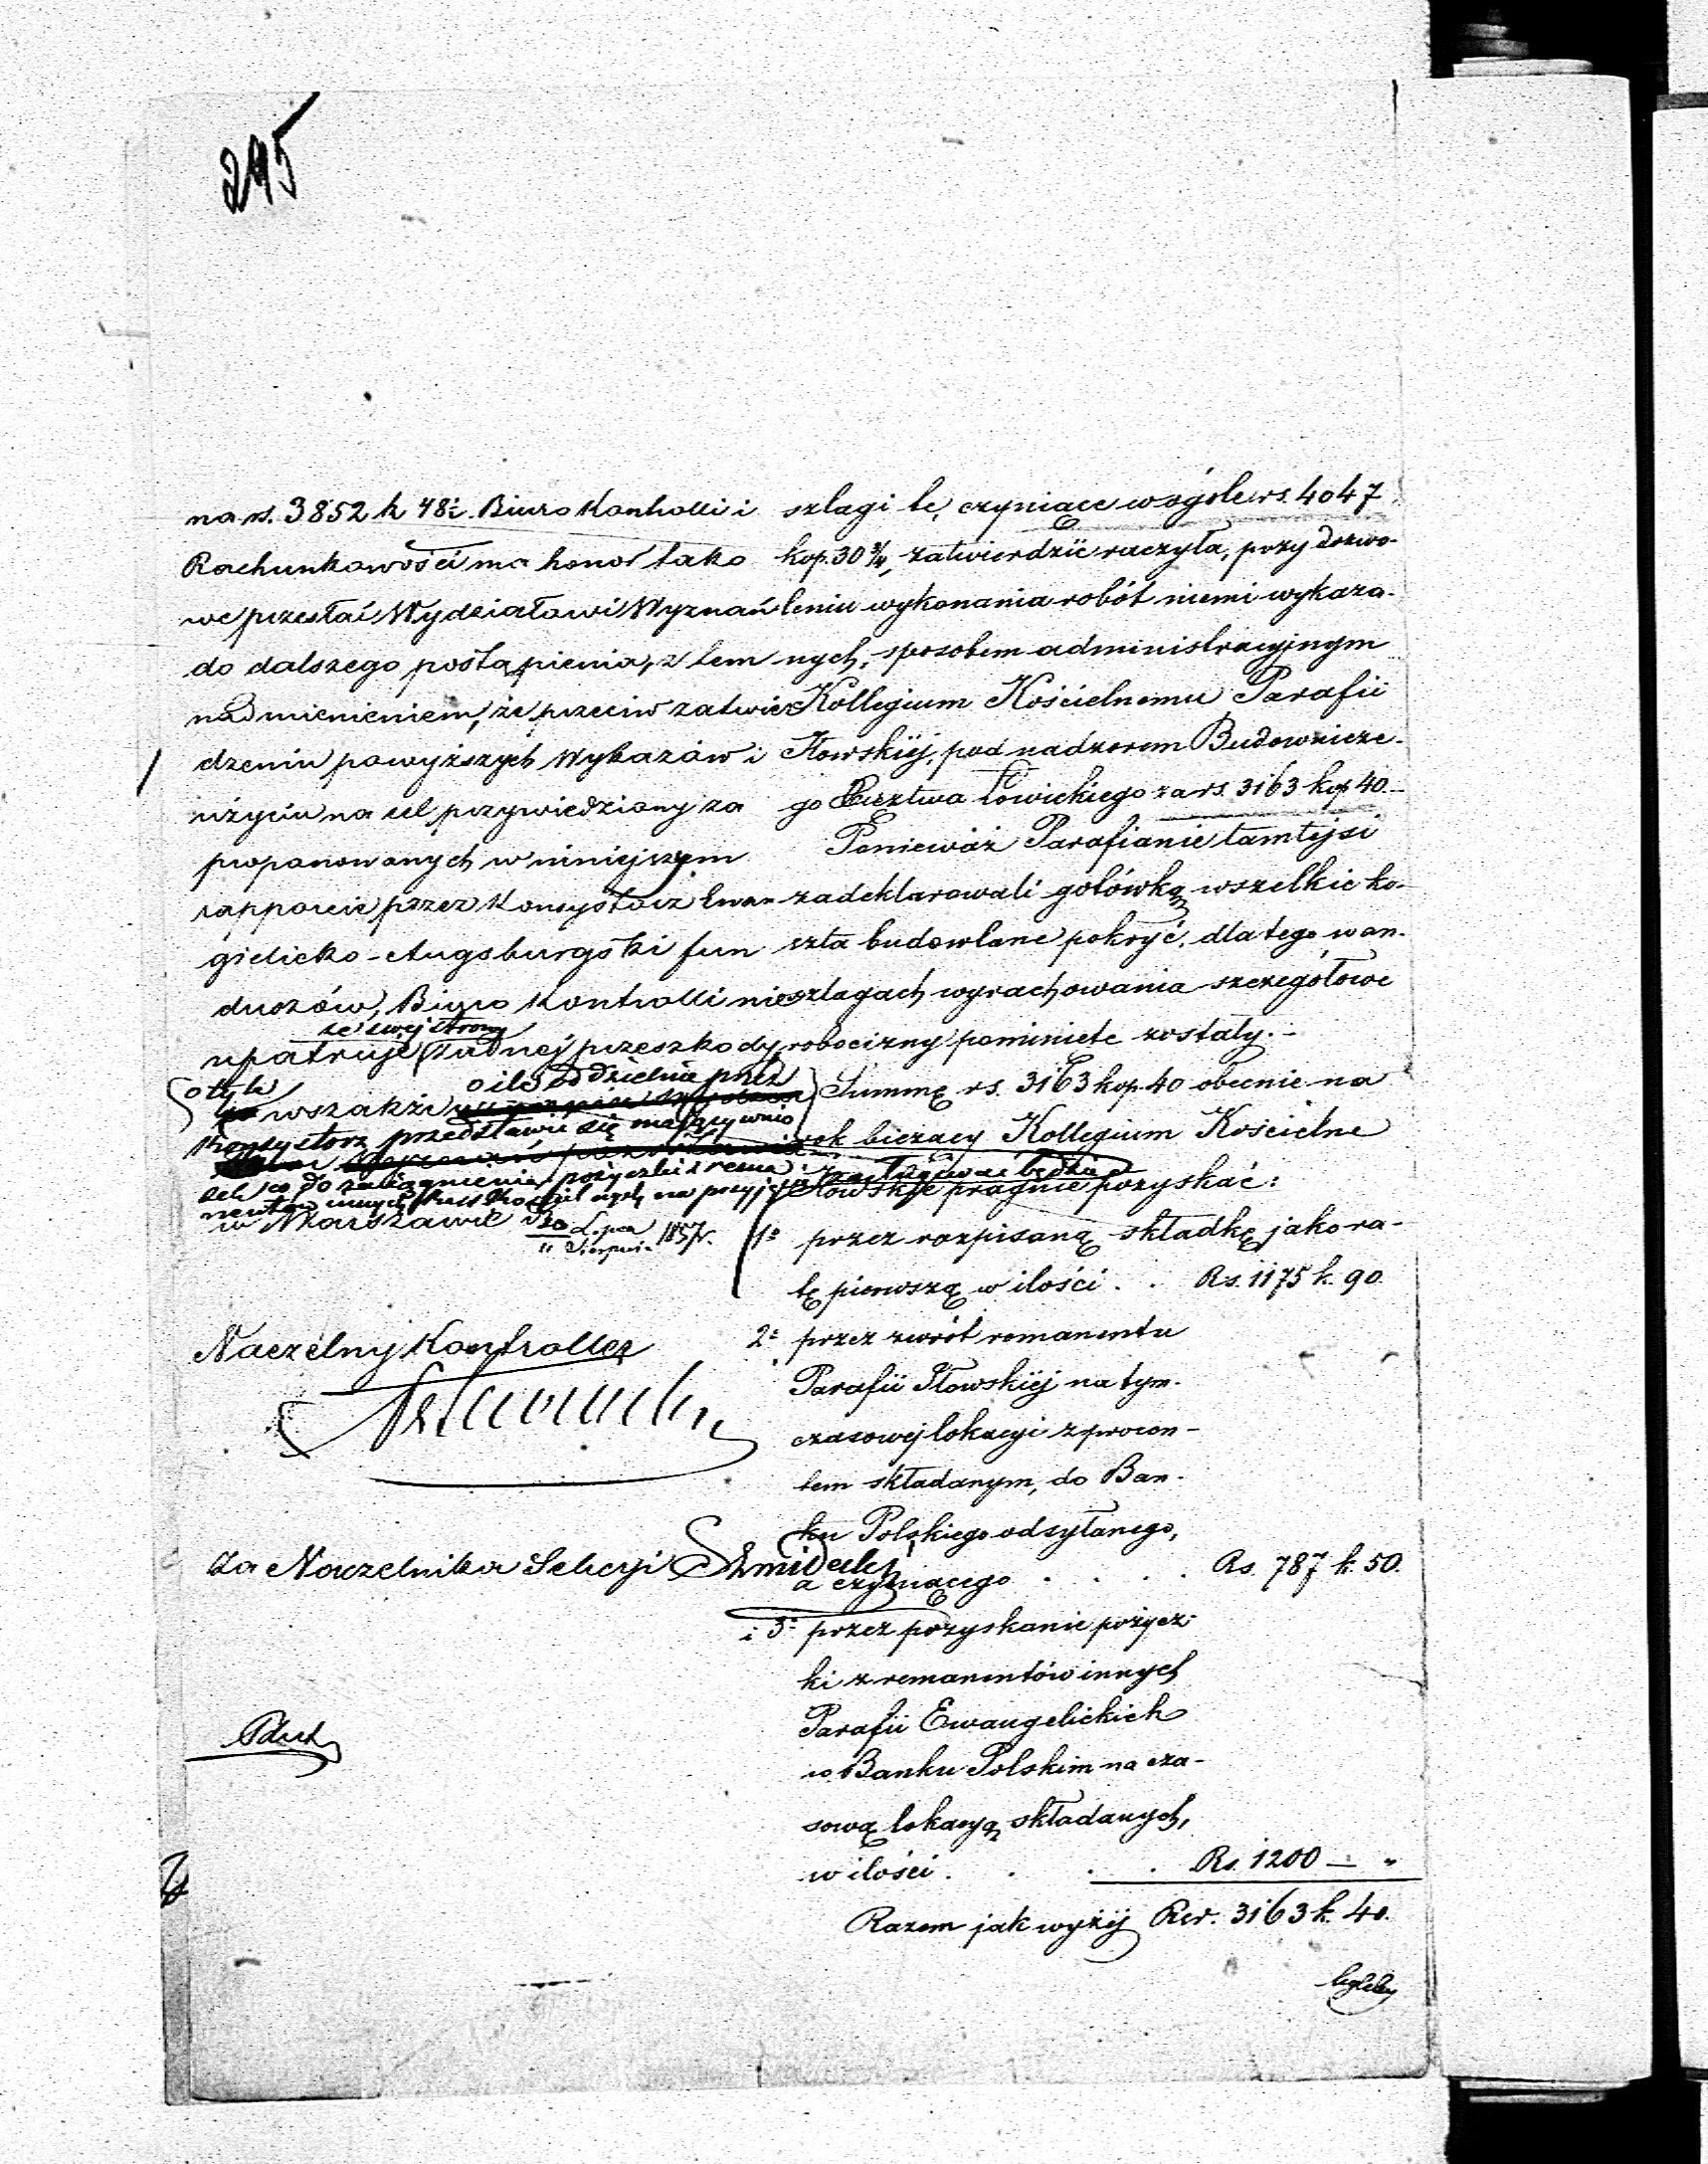 295
na rs. 3852 k 48½. Biuro Kontrolli i
Rachunkowości ma honor tako
we przesłać Wydziałowi Wyznań
do dalszego postąpienia, z tem
nadmienieniem, że przeciw zatwier
dzeniu powyższych Wykazów i
użyciu na cel przywiedziony za
proponowanych w niniejszym
rapporcie przez Konsystorz Ewan
gielicko-Augsburgski fun
duszów, Biuro Kontrolli nie
ze swej strony
upatruje żadnej przeszkody,
o tyle
wszakże o ile oddzielnie przez
Konsystorz przedstawić się mający wnio
sek co do zaciągnienia pożyczki z rema
nentów innych na przyjęcie zasługiwać będzie
w Warszawie d. 30 Lipca / 11 Sierpnia 1857 r.
Naczelny Kontroller
Za Naczelnika Sekcyi
szlagi te, czyniące w ogóle rs. 4047
kop. 30 3/4, zatwierdzić raczyła, przy dozwo-
leniu wykonania robót niemi wykaza-
nych, sposobem administracyjnym
Kollegium Kościelnemu Parafii
Iłowskiéj, pod nadzorem Budownicze-
go Pcztwa Łowickiego za rs. 3163 kop 40.-
Ponieważ Parafianie tamtejsi
zadeklarowali gotówką wszelkie ko-
szta budowlane pokryć, dla tego w an-
szlagach wyrachowania szczegółowe
robocizny pominięte zostały.-
Summę rs. 3163 kop. 40 obecnie na
rok bieżący Kollegium Kościelne
Iłowskie pragnie pozyskać:
1º przez rozpisaną składkę jako ra-
tę pierwszą w ilości . . Rs. 1175 k. 90.
2º przez zwrót remanentu
Parafii Iłowskiéj na tym-
czasowej lokacyi z procen-
tem składanym, do Ban-
ku Polskiego odsyłanego,
a czyniącego . . . . Rs. 787 k. 50.
i 3º przez pozyskanie pożycz-
ki z remanentów innych
Parafii Ewangelickich
w Banku Polskim na cza-
sową lokacyą składanych,
w ilości . . . . Rs. 1200 — "
Razem jak wyżéj Rsr. 3163 k. 40.